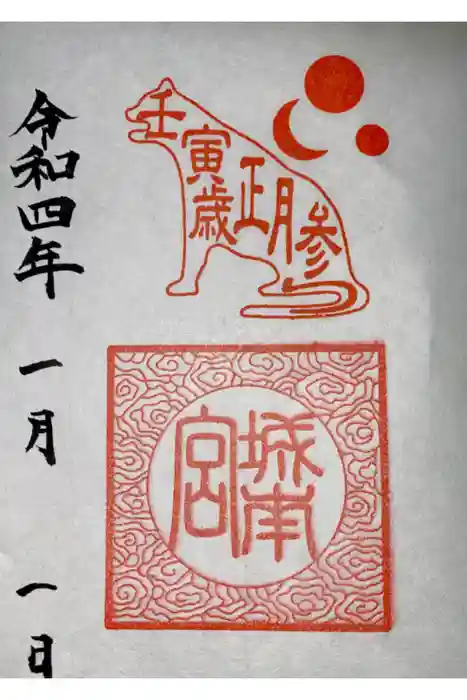 壬寅歳正月参
城南宮
令和四年 一月 一日